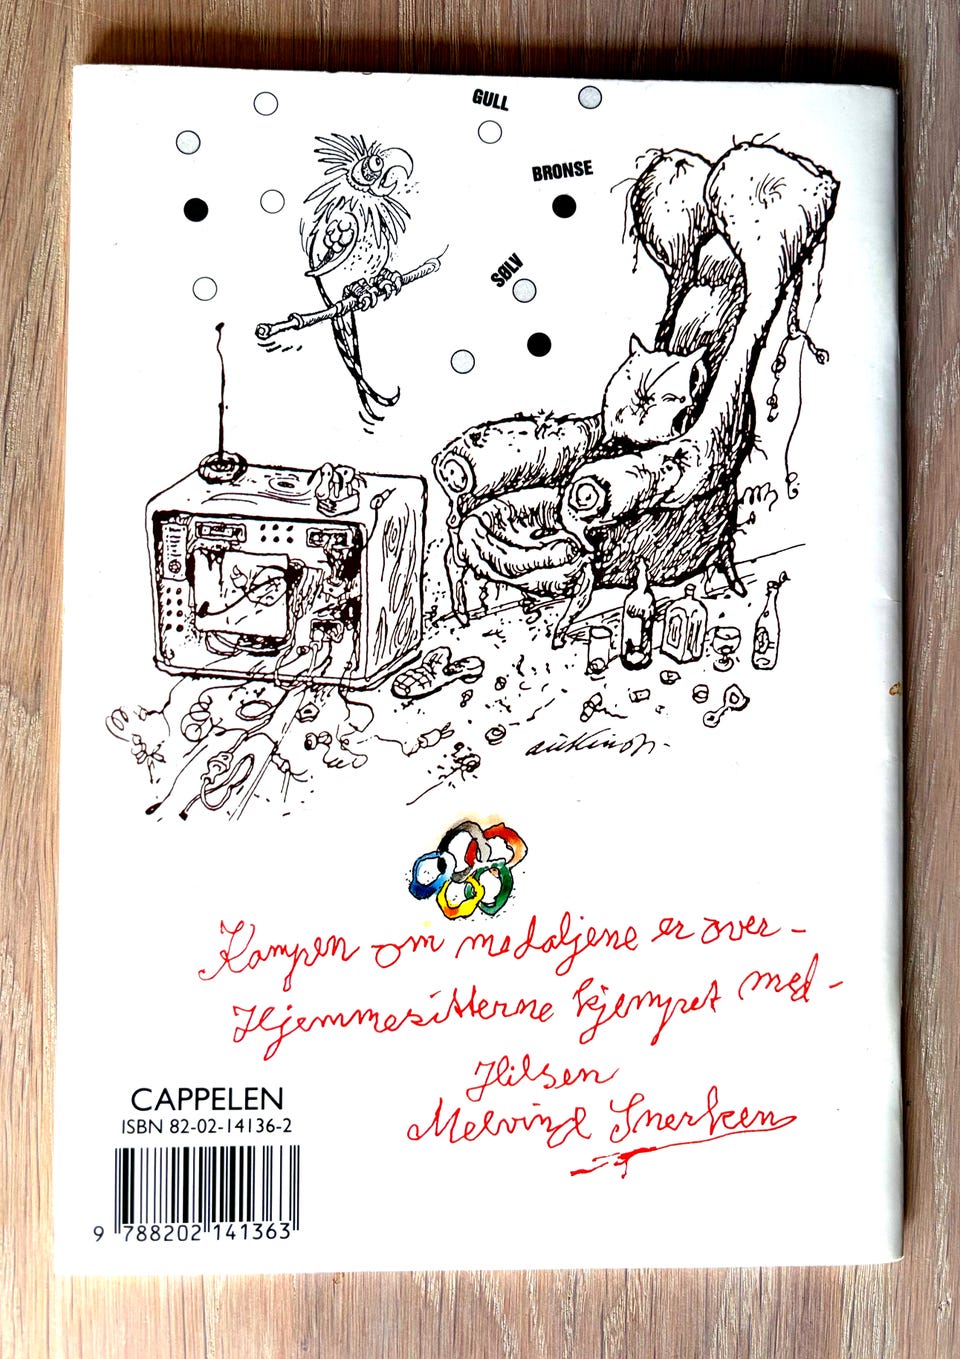 GULL
BRONSE
SØLV
Kampen om medaljene er over -
Hjemmesitterne kjempet med -
Hilsen
Melvind Snerken
CAPPELEN
ISBN 82-02-14136-2
9 788202 141363